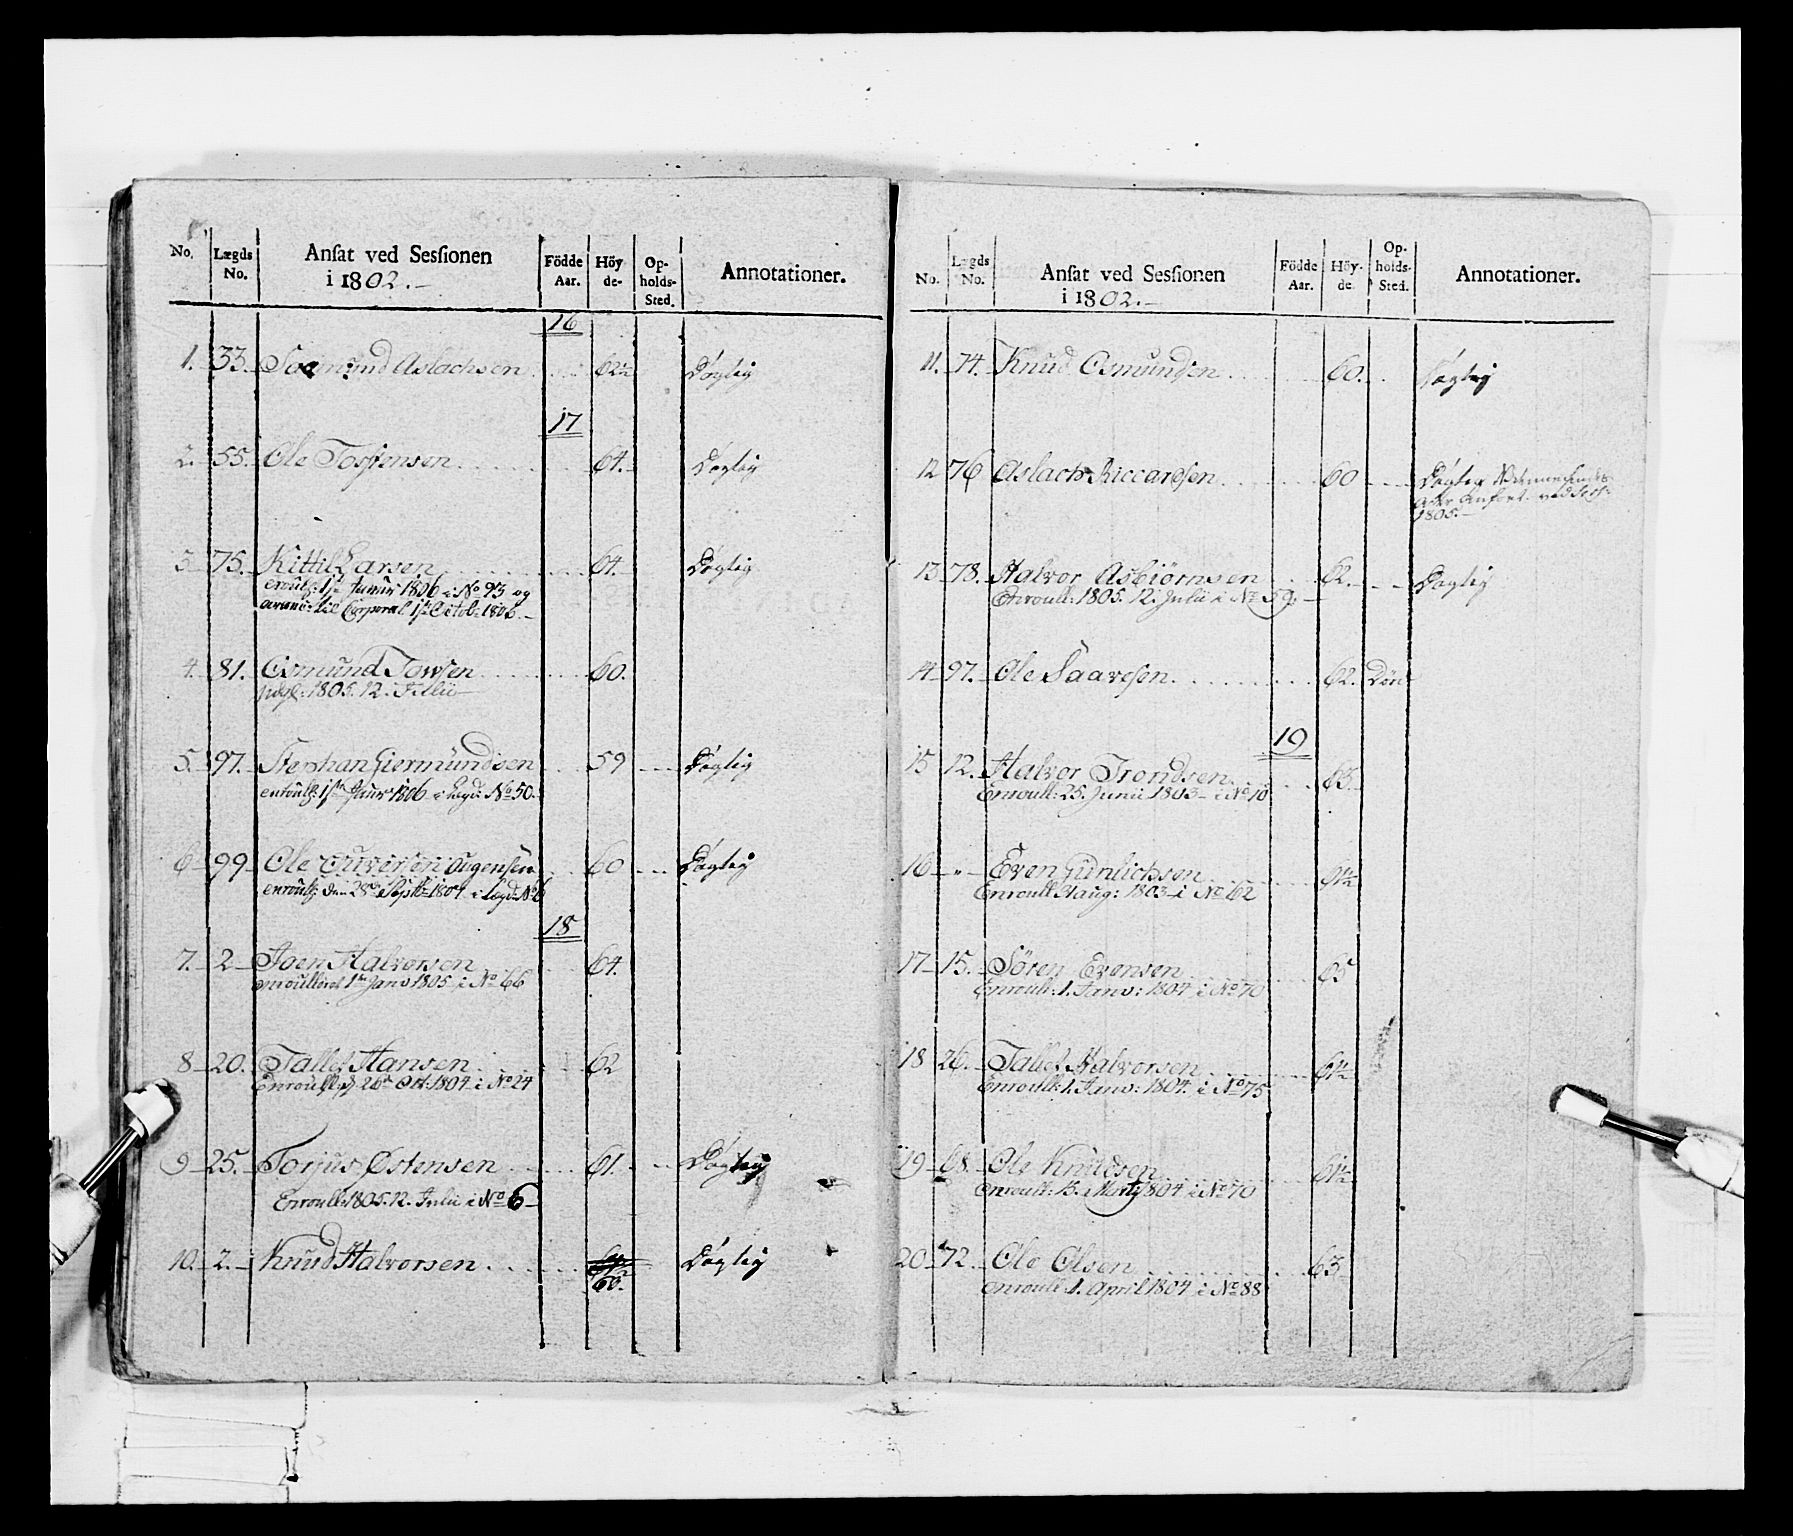 No. Lægds No. Ansat ved Sessionen i 1802.- Födde Aar. Höyde- Opholds-Sted. Annotationer.
16
1. 33. Aslachsen 62½ Døgtig
17
2. 55. Ole 64. Døgtig
3 75. Kittil Larsen 64. Døgtig
1806 i No 93 og
til Corporal 1ste Octob: 1806.-
4. 81. Osmund 60.
1805. 12. Julii
5. 97. Stephan Giermundsen 59 Døgtig
enroull: 1ste Janr 1806 i Lægd: No 50.
6 99 Ole 60 Døgtig
enroull: den 28de Septbr 1804 i Lægd: No 6
18
7. 2 Joen Halvorsen 64.
enroulleret 1te Janv 1805 i No 66
8 20. Tallef Hansen 62
Enroull: d 26de Oct: 1804 i No 24
9 25. Torjus Østensen 61. Døgtig
Enroull: 1805. 12. Julii i No 6
10. 2. Knud Halvorsen 60. Døgtig
No. Lægds No. Ansat ved Sessionen i 1802.- Födde Aar. Höyde. Opholds-Sted. Annotationer.
11. 74. Knud Osmundsen 60. Døgtig
12 76 Aslach Riccardsen 60 Døgtig
1805.-
13 78. Halvor Asbiörnsen 62. Døgtig
Enroull: 1805. 12. Julii i No 59.
14 97. Ole Saavesen 62.
19
15 12. Halvor Trondsen 63.
Enroull: 25. Junii 1803 i No 10
16 " Even Gunlichsen 61½
Enroull: 31 aug: 1803 i No 62
17 15. Sören Evensen 65
Enroull: 1. Janv: 1804 i No 70
18 26. Tallef Halvorsen 61½
Enroull: 1. Janv: 1804. i No 75
19 68. Ole Knudsen 61½
Enroull: 15. Marty 1804 i No 70
20 72. Ole Olsen 63
Enroull: 1. April 1804 i No 88